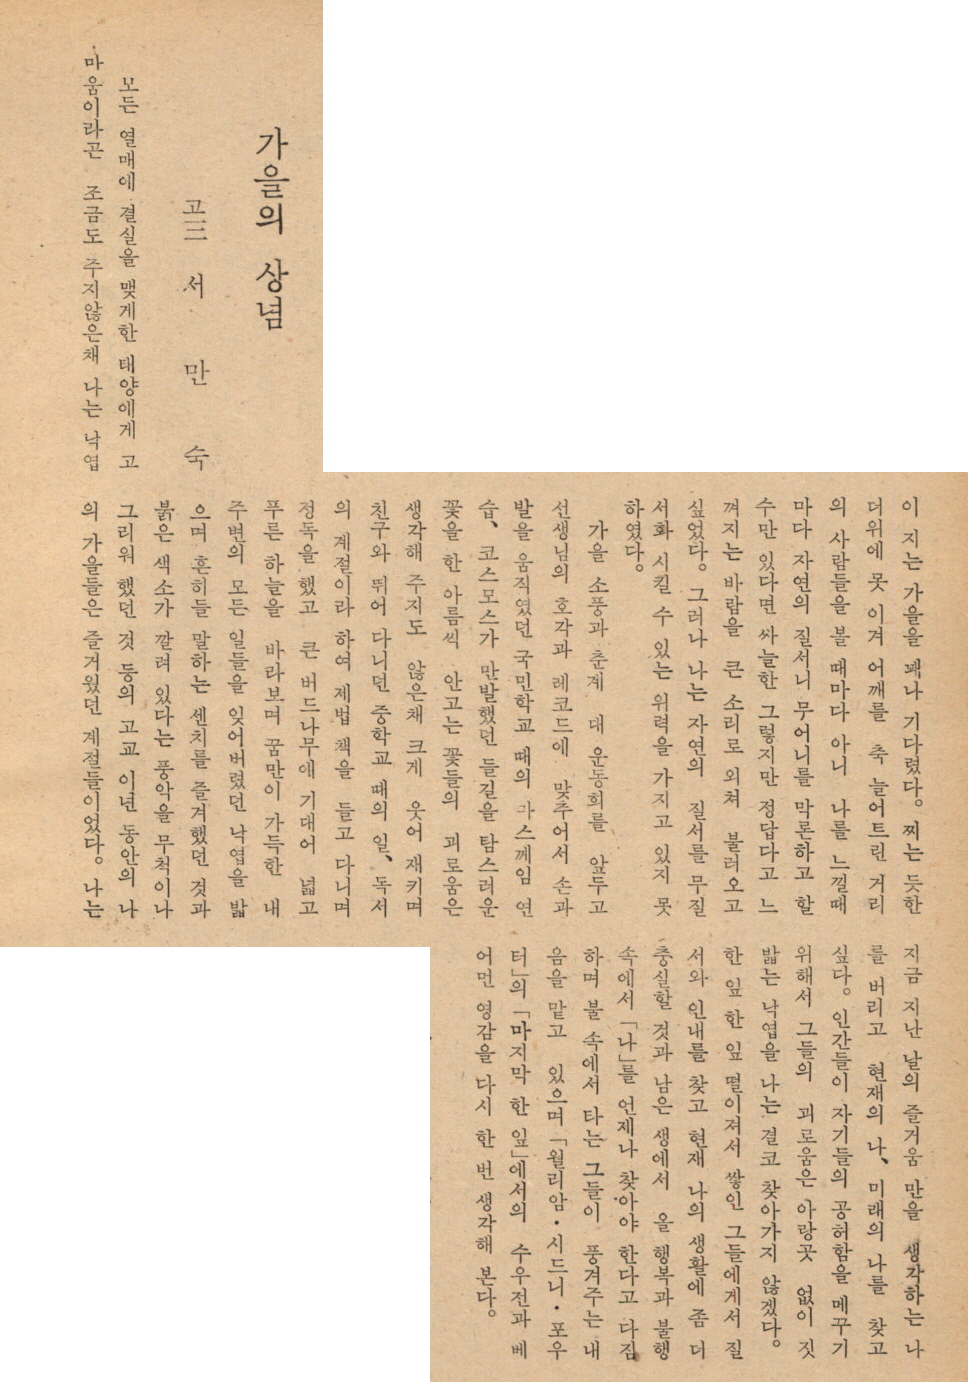 가을의 상념
고三 서 만 숙
모든 열매에 결실을 맺게한 태양에게 고
마움이라곤 조금도 주지않은채 나는 낙엽
이 지는 가을을 꽤나 기다렸다。 찌는 듯한
더위에 못 이겨 어깨를 축 늘어트린 거리
의 사람들을 볼 때마다 아니 나를 느낄때
마다 자연의 질서니 무어니를 막론하고 할
수만 있다면 싸늘한 그렇지만 정답다고 느
껴지는 바람을 큰 소리로 외쳐 불러오고
싶었다。 그러나 나는 자연의 질서를 무질
서화 시킬 수 있는 위력을 가지고 있지 못
하였다。
가을 소풍과 춘계 대 운동회를 앞두고
선생님의 호각과 레코드에 맞추어서 손과
발을 움직였던 국민학교 때의 마스께임 연
습、 코스모스가 만발했던 들길을 탐스러운
꽃을 한 아름씩 안고는 꽃들의 괴로움은
생각해 주지도 않은채 크게 웃어 재키며
친구와 뛰어 다니던 중학교 때의 일、 독서
의 계절이라 하여 제법 책을 들고 다니며
정독을 했고 큰 버드나무에 기대어 넓고
푸른 하늘을 바라보며 꿈만이 가득한 내
주변의 모든 일들을 잊어버렸던 낙엽을 밟
으며 흔히들 말하는 센치를 즐겨했던 것과
붉은 색소가 깔려 있다는 풍악을 무척이나
그리워 했던 것 등의 고교 이년 동안의 나
의 가을들은 즐거웠던 계절들이었다。 나는
지금 지난 날의 즐거움 만을 생각하는 나
를 버리고 현재의 나、 미래의 나를 찾고
싶다。 인간들이 자기들의 공허함을 메꾸기
위해서 그들의 괴로움은 아랑곳 없이 짓
밟는 낙엽을 나는 결코 찾아가지 않겠다。
한 잎 한 잎 떨어져서 쌓인 그들에게서 질
서와 인내를 찾고 현재 나의 생활에 좀 더
충실할 것과 남은 생에서 올 행복과 불행
속에서 「나」를 언제나 찾아야 한다고 다짐
하며 불 속에서 타는 그들이 풍겨주는 내
음을 맡고 있으며 「월리암・시드니・포우
터」의 「마지막 한 잎」에서의 수우전과 베
어먼 영감을 다시 한 번 생각해 본다。